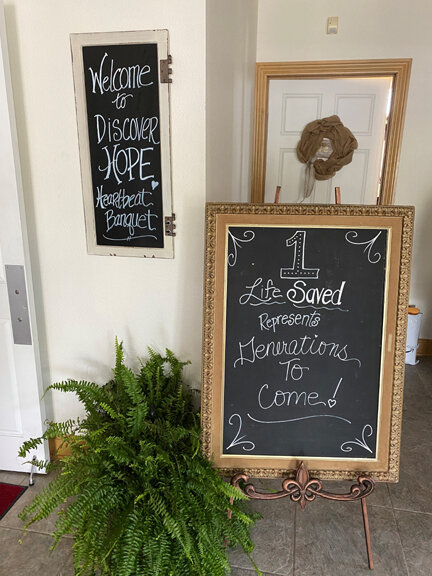 Welcome
to
DISCOVER
HOPE
Heartbeat
Banquet
1
Life Saved
Represents
Generations
To
Come!